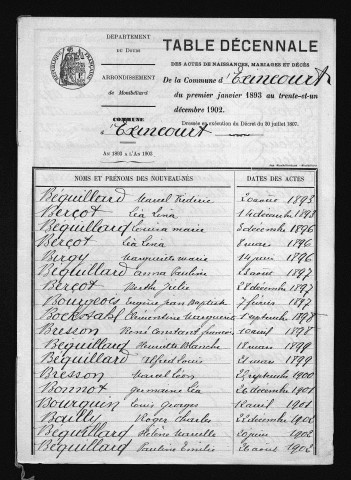 DÉPARTEMENT
DU DOUBS
ARRONDISSEMENT
de Montbéliard
COMMUNE
d'Exincourt
AN 1893 A L'AN 1903
TABLE DÉCENNALE
DES ACTES DE NAISSANCES, MARIAGES ET DÉCÈS
De la Commune d'Exincourt
du premier janvier 1893 au trente-et-un
décembre 1902.
Dressée en exécution du Décret du 20 juillet 1807.
NOMS ET PRÉNOMS DES NOUVEAU-NÉS DATES DES ACTES
Béguillard Marcel Frédéric 20 août 1893
Berçot Léa Lina 14 décembre 1893
Béguillard Louisa marie 3 décembre 1896
Berçot Léa Lina 8 mars 1896
Burgy Marguerite marie 14 juin 1896
Béguillard Emma Pauline 23 août 1897
Berçot Berthe Julie 28 décembre 1897
Bourgeois Eugène Jean Baptiste 7 février 1897
Bockstahl Clémentine Marguerite 1 septembre 1897
Bresson René Constant francois 10 avril 1898
Béguillard Henriette Blanche 18 mars 1899
Béguillard Alfred Louis 21 mars 1899
Bresson Marcel Léon 22 septembre 1900
Bonnot germaine Léa 26 décembre 1901
Bourquin Louis Georges 12 avril 1901
Bailly Roger Charles 22 décembre 1902
Béguillard Hélène Marcelle 20 juin 1902
Béguillard Pauline Emilie 26 août 1902